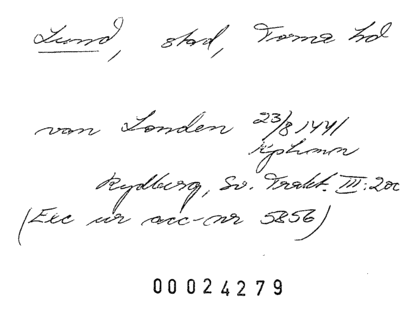 Lund, stad, Torna hd
van Londen 23/8 1441
Kphamn
Rydberg, Sv. Trakt. III: 200
(Exc ur acc-nr 5856)
00024279